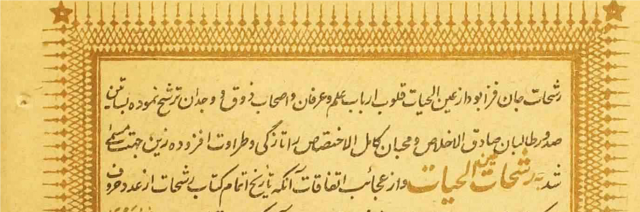 رشحات جان فزا بود از عین الحیات قلوب ارباب علم و عرفان و اصحاب ذوق و وجدان ترشح نموده بساتین
صدور طالبان صادق الاخلاص و محبان کامل الاختصاص را تازگی و طراوت افزوده زین جهت مسمی
شد به رشحات عین الحیات و از عجائب اتفاقات آنکه تاریخ اتمام کتاب رشحات از عدد حروف